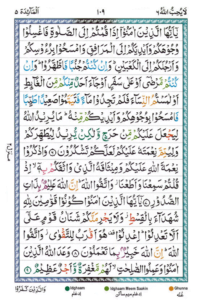 لَا يُحِبُّ اللهُ ٦
١٠٩
الْمَآئِدَة ٥
يٰٓاَيُّهَا الَّذِيْنَ اٰمَنُوْٓا اِذَا قُمْتُمْ اِلَى الصَّلٰوةِ فَاغْسِلُوْا
وُجُوْهَكُمْ وَاَيْدِيَكُمْ اِلَى الْمَرَافِقِ وَامْسَحُوْا بِرُءُوْسِكُمْ
وَاَرْجُلَكُمْ اِلَى الْكَعْبَيْنِ ؕ وَاِنْ كُنْتُمْ جُنُبًا فَاطَّهَّرُوْا ؕ وَاِنْ
كُنْتُمْ مَّرْضٰٓى اَوْ عَلٰى سَفَرٍ اَوْ جَآءَ اَحَدٌ مِّنْكُمْ مِّنَ الْغَآئِطِ
اَوْ لٰمَسْتُمُ النِّسَآءَ فَلَمْ تَجِدُوْا مَآءً فَتَيَمَّمُوْا صَعِيْدًا طَيِّبًا
فَامْسَحُوْا بِوُجُوْهِكُمْ وَاَيْدِيْكُمْ مِّنْهُ ؕ مَا يُرِيْدُ اللهُ
لِيَجْعَلَ عَلَيْكُمْ مِّنْ حَرَجٍ وَّلٰكِنْ يُّرِيْدُ لِيُطَهِّرَكُمْ
وَلِيُتِمَّ نِعْمَتَهٗ عَلَيْكُمْ لَعَلَّكُمْ تَشْكُرُوْنَ ۝ وَاذْكُرُوْا
نِعْمَةَ اللهِ عَلَيْكُمْ وَمِيْثَاقَهُ الَّذِيْ وَاثَقَكُمْ بِهٖٓ ۙ اِذْ
قُلْتُمْ سَمِعْنَا وَاَطَعْنَا ؗ وَاتَّقُوا اللهَ ؕ اِنَّ اللهَ عَلِيْمٌۢ بِذَاتِ
الصُّدُوْرِ ۝ يٰٓاَيُّهَا الَّذِيْنَ اٰمَنُوْا كُوْنُوْا قَوّٰمِيْنَ لِلّٰهِ
شُهَدَآءَ بِالْقِسْطِ ؗ وَلَا يَجْرِمَنَّكُمْ شَنَاٰنُ قَوْمٍ عَلٰٓى
اَلَّا تَعْدِلُوْا ؕ اِعْدِلُوْا ۫ هُوَ اَقْرَبُ لِلتَّقْوٰى ؗ وَاتَّقُوا
اللهَ ؕ اِنَّ اللهَ خَبِيْرٌۢ بِمَا تَعْمَلُوْنَ ۝ وَعَدَ اللهُ الَّذِيْنَ
اٰمَنُوْا وَعَمِلُوا الصّٰلِحٰتِ ۙ لَهُمْ مَّغْفِرَةٌ وَّاَجْرٌ عَظِيْمٌ ۝